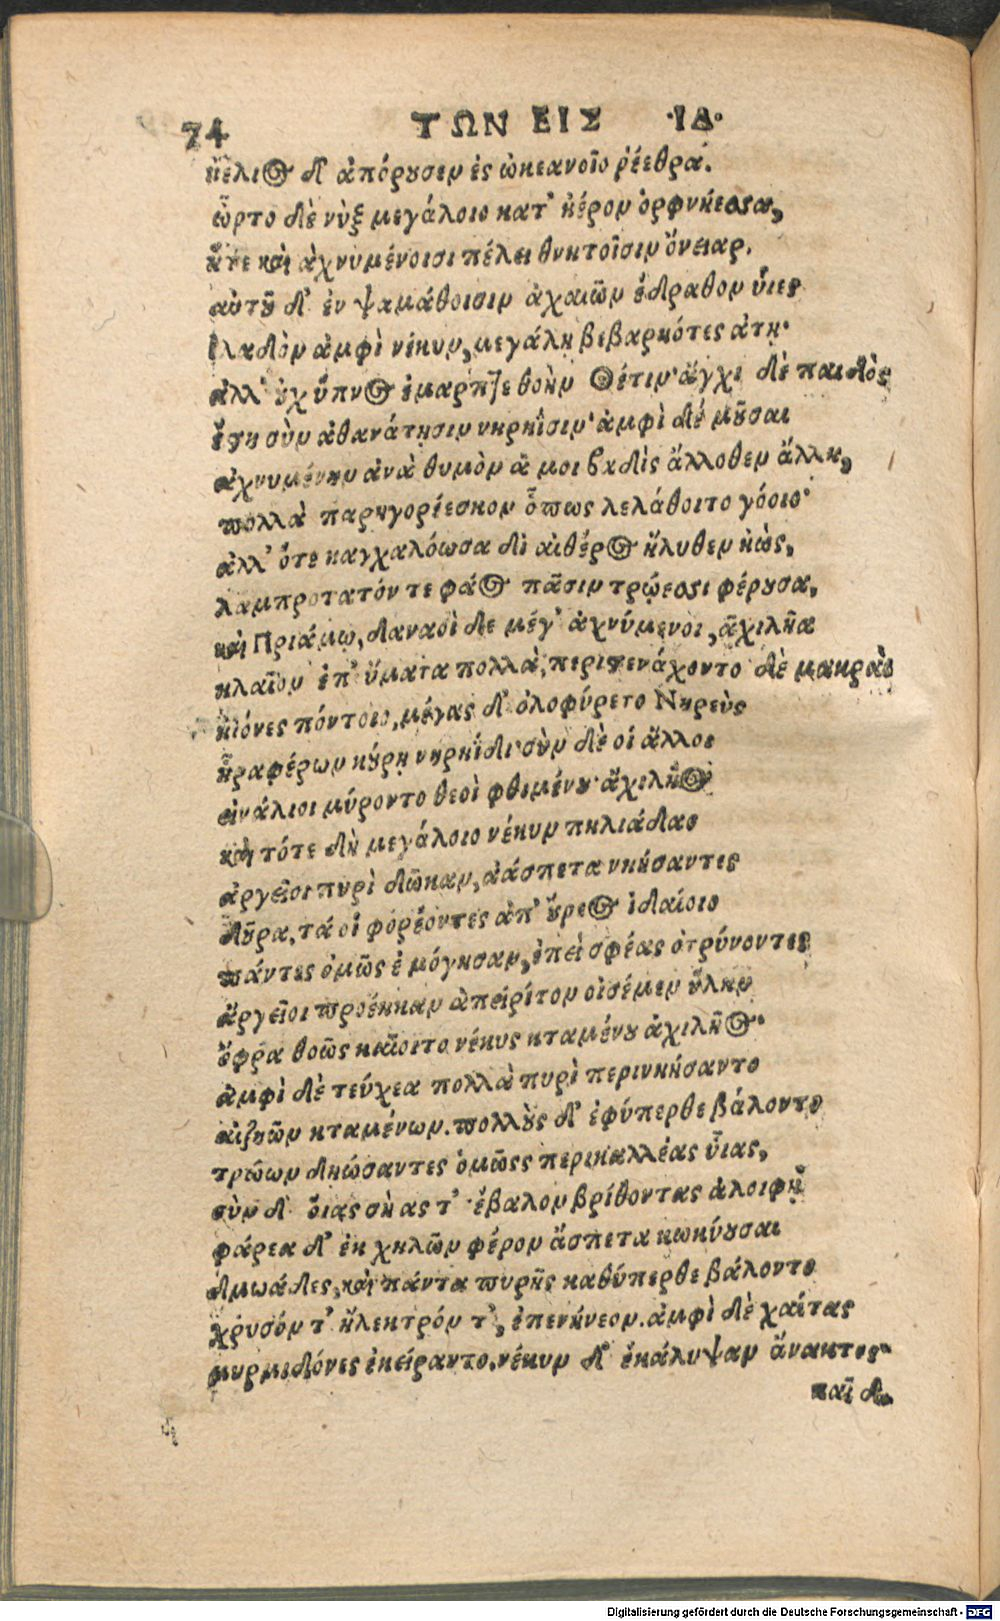 74 ΤΩΝ ΕΙΣ ·ΙΔ·
ἠέλιος δ' ἀπόρουσεν ἐς ὠκεανοῖο ῥέεθρα.
ὦρτο δὲ νὺξ μεγάλοιο κατ' ἠέρον ὀρφνήεσσα,
ἥτε καὶ ἀχνυμένοισι πέλει θνητοῖσιν ὄνειαρ.
αὐτοῦ δ' ἐν ψαμάθοισιν ἀχαιῶν ἔδραθον υἷες
ἰλαδὸν ἀμφὶ νέκυν, μεγάλη βεβαρηότες ἄτη·
ἀλλ' οὐχ ὕπνος ἔμαρπτε θοὴν Θέτιν· ἄγχι δὲ παιδὸς
ἔστη σὺν ἀθανάτησιν νηρηΐσιν· ἀμφὶ δὲ μοῦσαι
ἀχνυμένην ἀνὰ θυμὸν ἀμοιβαδὶς ἄλλοθεν ἄλλη,
πολλὰ παρηγορέεσκον ὅπως λελάθοιτο γόοιο·
ἀλλ' ὅτε καγχαλόωσα δι αἰθέρος ἤλυθεν ἠὼς,
λαμπροτατόν τε φάος πᾶσιν τρώεσσι φέρουσα,
καὶ Πριάμῳ, δαναοὶ δε μέγ' ἀχνύμενοι, ἀχιλῆα
κλαῖον ἐπ' ἤματα πολλὰ, περιστενάχοντο δὲ μακρὰς
ἠϊόνες πόντοιο, μέγας δ' ὀλοφύρετο Νηρεὺς
ἦρα φέρων κούρῃ νηρηΐδι· σὺν δὲ οἱ ἄλλοι
εἰνάλιοι μύροντο θεοὶ φθιμένου ἀχιλῆος
καὶ τότε δὴ μεγάλοιο νέκυν πηλιάδαο
ἀργεῖοι πυρὶ δῶκαν, ἀάσπετα νηήσαντες
δοῦρα, τά οἱ φορέοντες ἀπ' οὔρεος ἰδαίοιο
πάντες ὁμῶς ἐ μόγησαν, ἐπεὶ σφέας ὀτρύνοντες
ἀργεῖοι προέηκαν ἀπείριτον οἰσέμεν ὕλην
ὄφρα θοῶς καίοιτο νέκυς κταμένου ἀχιλῆος·
ἀμφὶ δὲ τεύχεα πολλὰ πυρὶ περινηήσαντο
αἰζηῶν κταμένων. πολλοὺς δ' ἐφύπερθε βάλοντο
τρώων δηώσαντες ὁμῶς περικαλλέας υἷας,
σὺν δ' φάρεα δ' ἐκ χηλῶν φέρον ἄσπετα κωκύουσαι
δμωάδες, καὶ πάντα πυρῆς καθύπερθε βάλοντο
χρυσόν τ' ἤλεκτρόν τ', ἐπενήνεον. ἀμφὶ δὲ χαίτας
μυρμιδόνες ἐκείραντο, νέκυν δ' ἐκάλυψαν ἄνακτος·
παῖδα
Digitalisierung gefördert durch die Deutsche Forschungsgemeinschaft - DFG